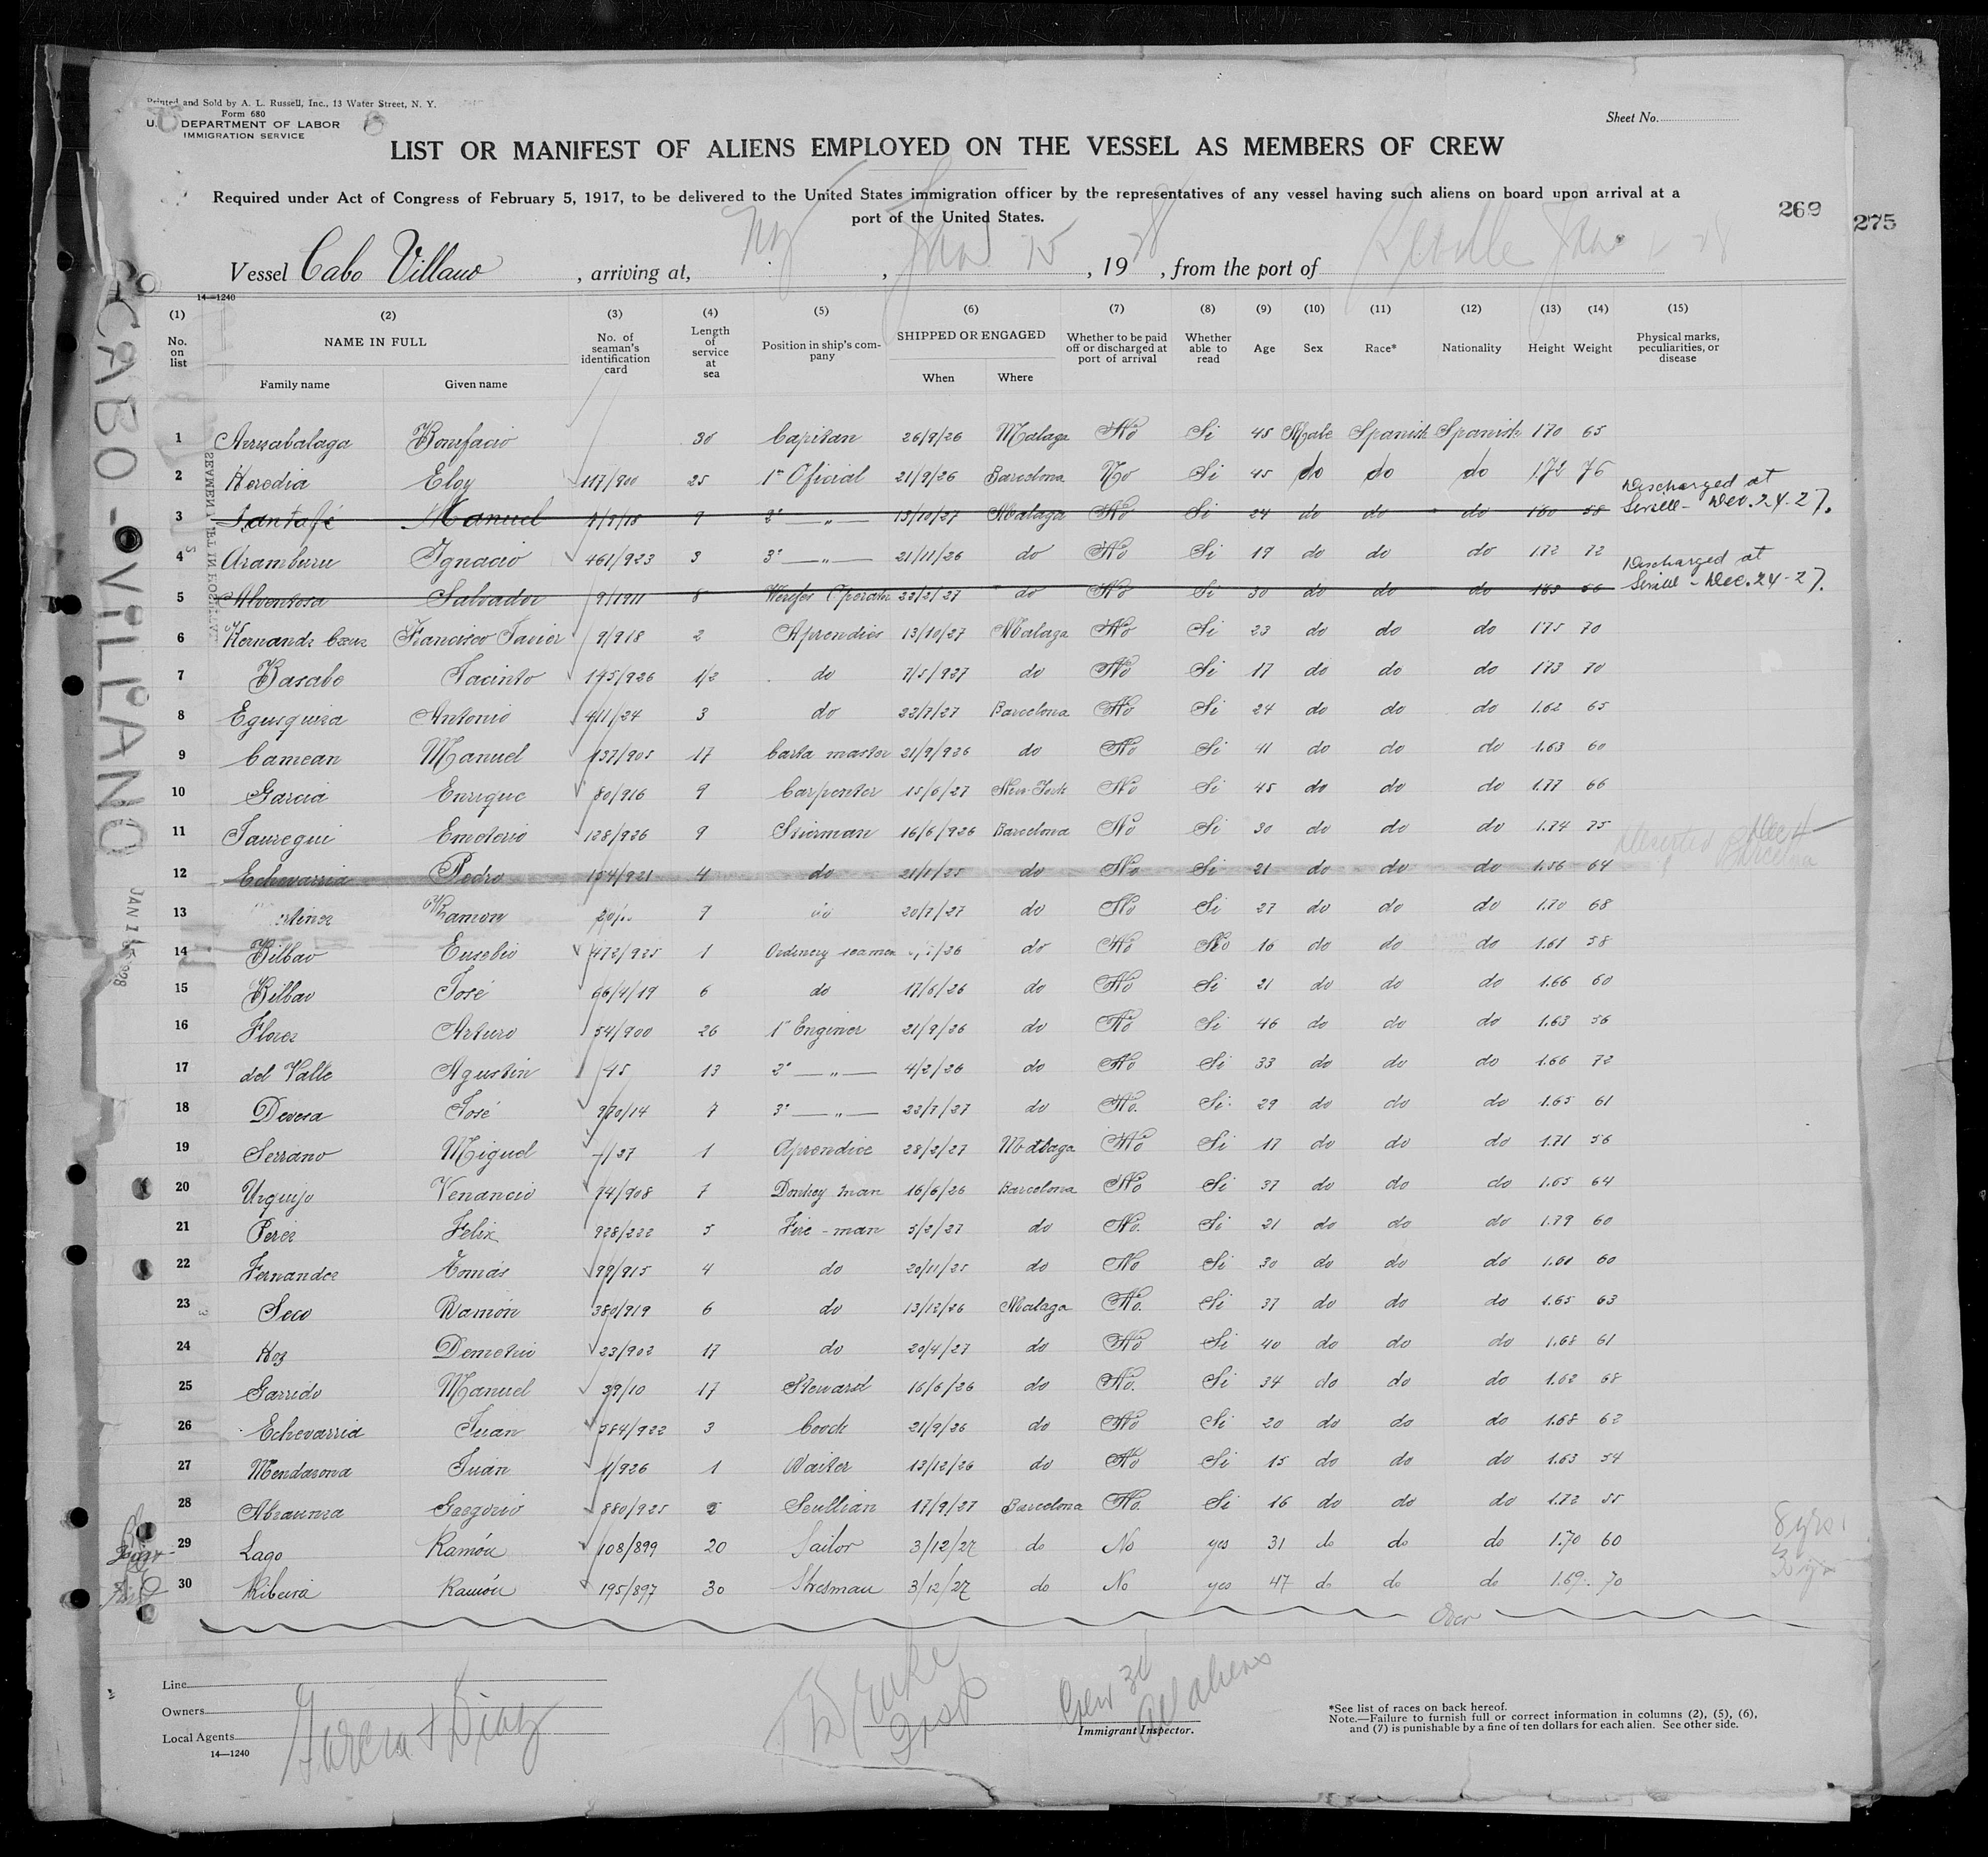 Printed and Sold by A. L. Russell, Inc., 13 Water Street, N. Y.
Form 680
U. DEPARTMENT OF LABOR
IMMIGRATION SERVICE
Sheet No.
LIST OR MANIFEST OF ALIENS EMPLOYED ON THE VESSEL AS MEMBERS OF CREW
Required under Act of Congress of February 5, 1917, to be delivered to the United States immigration officer by the representatives of any vessel having such aliens on board upon arrival at a
port of the United States.
269
275
Vessel Cabo Villano, arriving at, NY, Jan 15, 1928, from the port of Seville Jan 1 28
14—1240
(1) (2) (3) (4) (5) (6) (7) (8) (9) (10) (11) (12) (13) (14) (15)
No. on list NAME IN FULL No. of seaman's identification card Length of service at sea Position in ship's company SHIPPED OR ENGAGED Whether to be paid off or discharged at port of arrival Whether able to read Age Sex Race* Nationality Height Weight Physical marks, peculiarities, or disease
Family name Given name When Where
1 Bonifacio 30 Capitan 26/9/26 Malaga No Si 45 Male Spanish Spanish 170 65
2 Heredia Eloy 117/900 25 1º Oficial 21/9/26 Barcelona No Si 45 do do do 1.72 76
3 Santafé Manuel 7 2º —„— 13/10/27 Malaga No Si 24 do do do 160 58 Discharged at Seville - Dec. 24-27.
4 Aramburu Ignacio 461/923 3 3º —„— 21/11/26 do No Si 19 do do do 1.72 72
5 Alventosa Salvador 9/1911 8 do No Si 30 do do do 163 56 Discharged at Seville - Dec. 24-27.
6 Francisco Javier 9/918 2 Aprendice 13/10/27 Malaga No Si 23 do do do 175 70
7 Basabe Jacinto 145/926 1/2 do 7/5/927 do No Si 17 do do do 173 70
8 Egusquiza Antonio 411/24 3 do 22/7/27 Barcelona No Si 24 do do do 1.62 65
9 Camean Manuel 137/905 17 Carta master 21/9/926 do No Si 41 do do do 1.63 60
10 Garcia Enrique 80/916 9 Carpenter 15/6/27 New-York No Si 45 do do do 1.77 66
11 Jauregui Emeterio 128/926 9 Stierman 16/6/926 Barcelona No Si 30 do do do 1.74 75
12 Echevarria Pedro 154/921 4 do 21/1/25 do No Si 21 do do do 1.56 64 Deserted Barcelona
13 Ramon 7 do 20/7/27 do No Si 27 do do do 1.70 68
14 Bilbao Eusebio 472/925 1 Ordinery seamen do No No 16 do do do 1.61 58
15 Bilbao José 66/4/19 6 do 17/6/26 do No Si 21 do do do 1.66 60
16 Florez Arturo 54/900 26 1º Enginer 21/9/26 do No Si 46 do do do 1.63 56
17 del Valle Agustin 45 13 2º —„— 4/2/26 do No Si 33 do do do 1.66 72
18 Devesa José 970/14 7 3º —„— 22/7/27 do No. Si 29 do do do 1.65 61
19 Serrano Miguel 1 Aprendice 28/2/27 Malaga No Si 17 do do do 1.71 56
20 Urquijo Venancio 74/908 7 Donkey man 16/6/26 Barcelona No Si 37 do do do 1.65 64
21 Perez Felix 928/222 5 Fire-man 5/2/27 do No. Si 21 do do do 1.79 60
22 Fernandez Tomás 99/915 4 do 20/11/25 do No Si 30 do do do 60
23 Seco Ramón 380/919 6 do 13/12/26 Malaga No. Si 37 do do do 1.65 63
24 Demetrio 23/902 17 do 20/4/27 do No Si 40 do do do 1.68 61
25 Garrido Manuel 39/10 17 Steward 16/6/26 do No. Si 34 do do do 1.62 68
26 Echevarria Juan 384/922 3 Coock 21/9/26 do No Si 20 do do do 1.68 62
27 Mendazona Juan 1/926 1 Waiter 13/12/26 do No Si 15 do do do 1.63 54
28 Gregorio 880/925 2 Scullian 17/9/27 Barcelona No. Si 16 do do do 1.72 55
29 Lago Ramón 108/899 20 Sailor 3/12/27 do No yes 31 do do do 1.70 60 8 yrs
30 Ribeira Ramón 195/897 30 3/12/27 do No yes 47 do do do 1.69 70
Over
CABO - VILLANO
JAN 15 1928
Line
Owners
Local Agents Garcia & Diaz
14—1240
Crew 30
All aliens
Immigrant Inspector.
*See list of races on back hereof.
Note.—Failure to furnish full or correct information in columns (2), (5), (6),
and (7) is punishable by a fine of ten dollars for each alien. See other side.